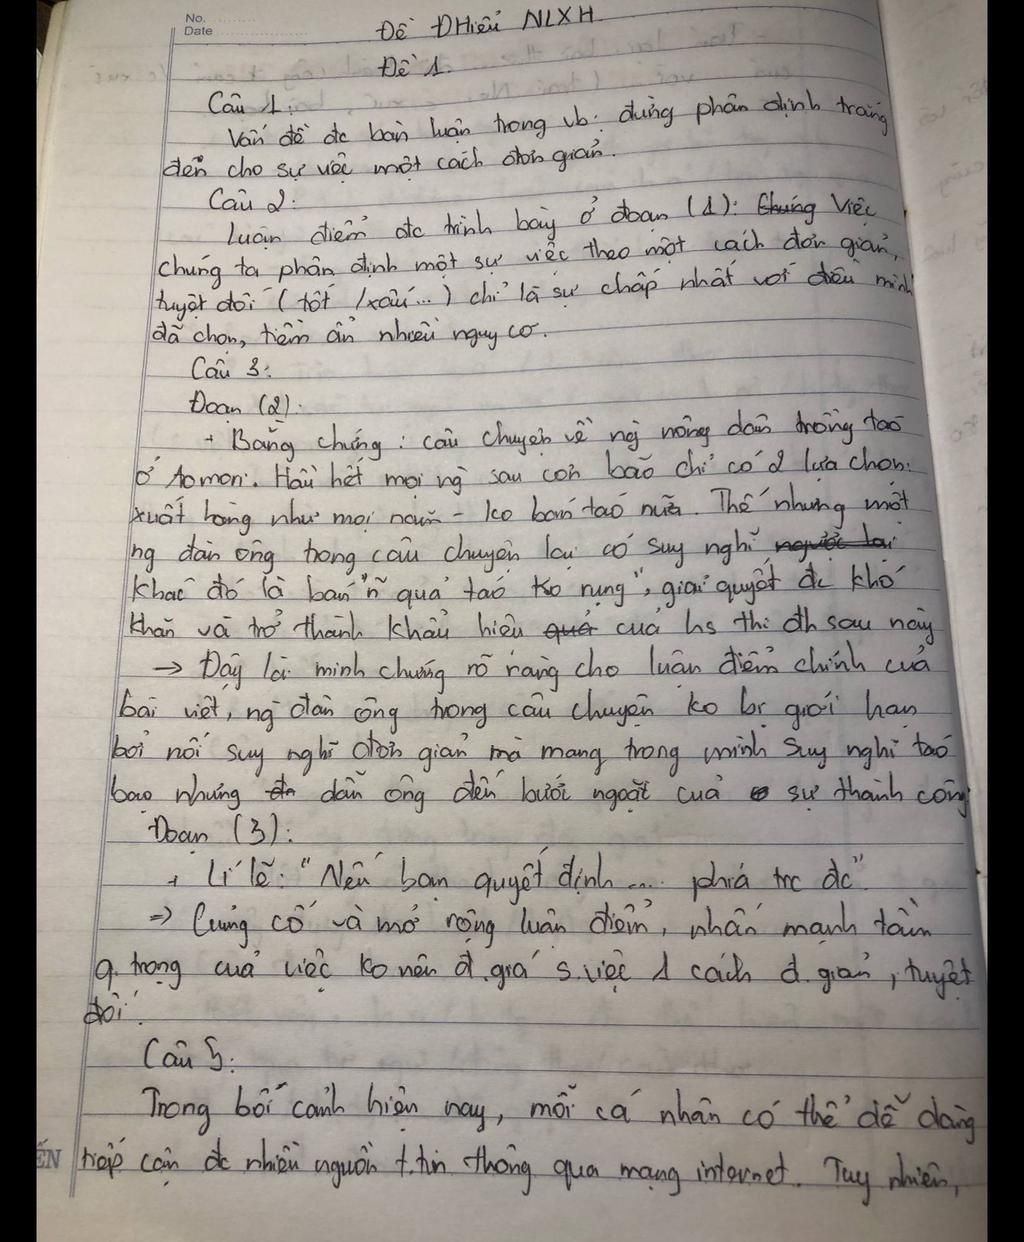 No.
Date
Đề ĐHiểu NLXH
Đề 1.
Câu 1:
Vấn đề đc bàn luận trong vb: đừng phán định trắng
đến cho sự việc một cách đơn giản.
Câu 2:
Luận điểm đc trình bày ở đoạn (1): Chúng Việc
chúng ta phán định một sự việc theo một cách đơn giản,
tuyệt đối (tốt /xấu...) chỉ là sự chấp nhất với điều mình
đã chọn, tiềm ẩn nhiều nguy cơ.
Câu 3:
Đoạn (2):
+ Bằng chứng: câu chuyện về ng nông dân trồng táo
ở Aomori. Hầu hết mọi ng sau cơn bão chỉ có 2 lựa chọn:
xuất hàng như mọi năm - ko bán táo nữa. Thế nhưng một
ng đàn ông trong câu chuyện lại có suy nghĩ ngược lại
khác đó là bán "n~ quả táo ko rụng", giải quyết đc khó
khăn và trở thành khẩu hiệu quả của hs thi đh sau này
→ Đây là minh chứng rõ ràng cho luận điểm chính của
bài viết, ng đàn ông trong câu chuyện ko bị giới hạn
bởi nối suy nghĩ đơn giản mà mang trong mình suy nghĩ táo
bạo nhưng dẫn ông đến bước ngoặt của sự thành công
Đoạn (3):
+ Lí lẽ: "Nếu bạn quyết định .... phía trc đc"
⇒ Củng cố và mở rộng luận điểm, nhấn mạnh tầm
q.trọng của việc ko nên đ.giá s.việc 1 cách đ.giản, tuyệt
đối.
Câu 5:
Trong bối cảnh hiện nay, mỗi cá nhân có thể dễ dàng
ẾN tiếp cận đc nhiều nguồn t.tin thông qua mạng internet. Tuy nhiên,